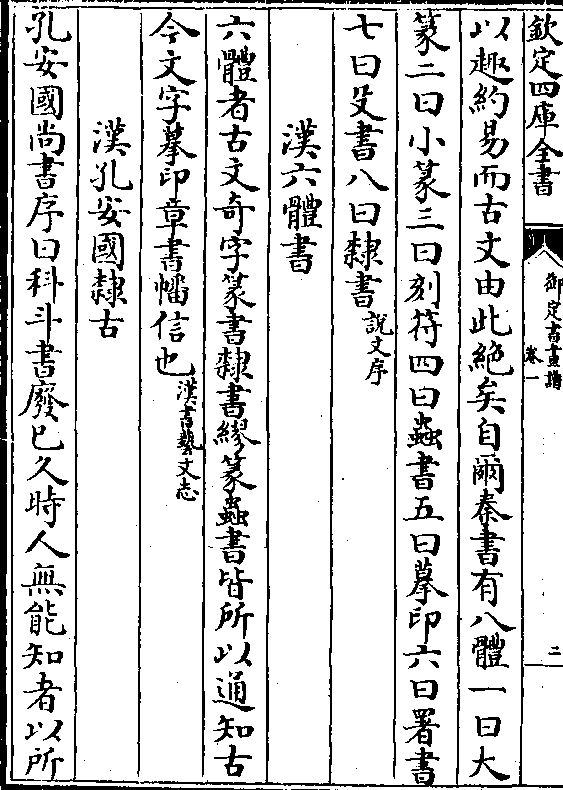 欽定四庫全書
御定書畫譜
卷一
二
以趣約易而古文由此絶矣自爾秦書有八體一曰大
篆二曰小篆三曰刻符四曰蟲書五曰摹印六曰署書
七曰殳書八曰隸書說文序
漢六體書
六體者古文奇字篆書隸書繆篆蟲書皆所以通知古
今文字摹印章書幡信也漢書藝文志
漢孔安國隸古
孔安國尚書序曰科斗書廢已久時人無能知者以所